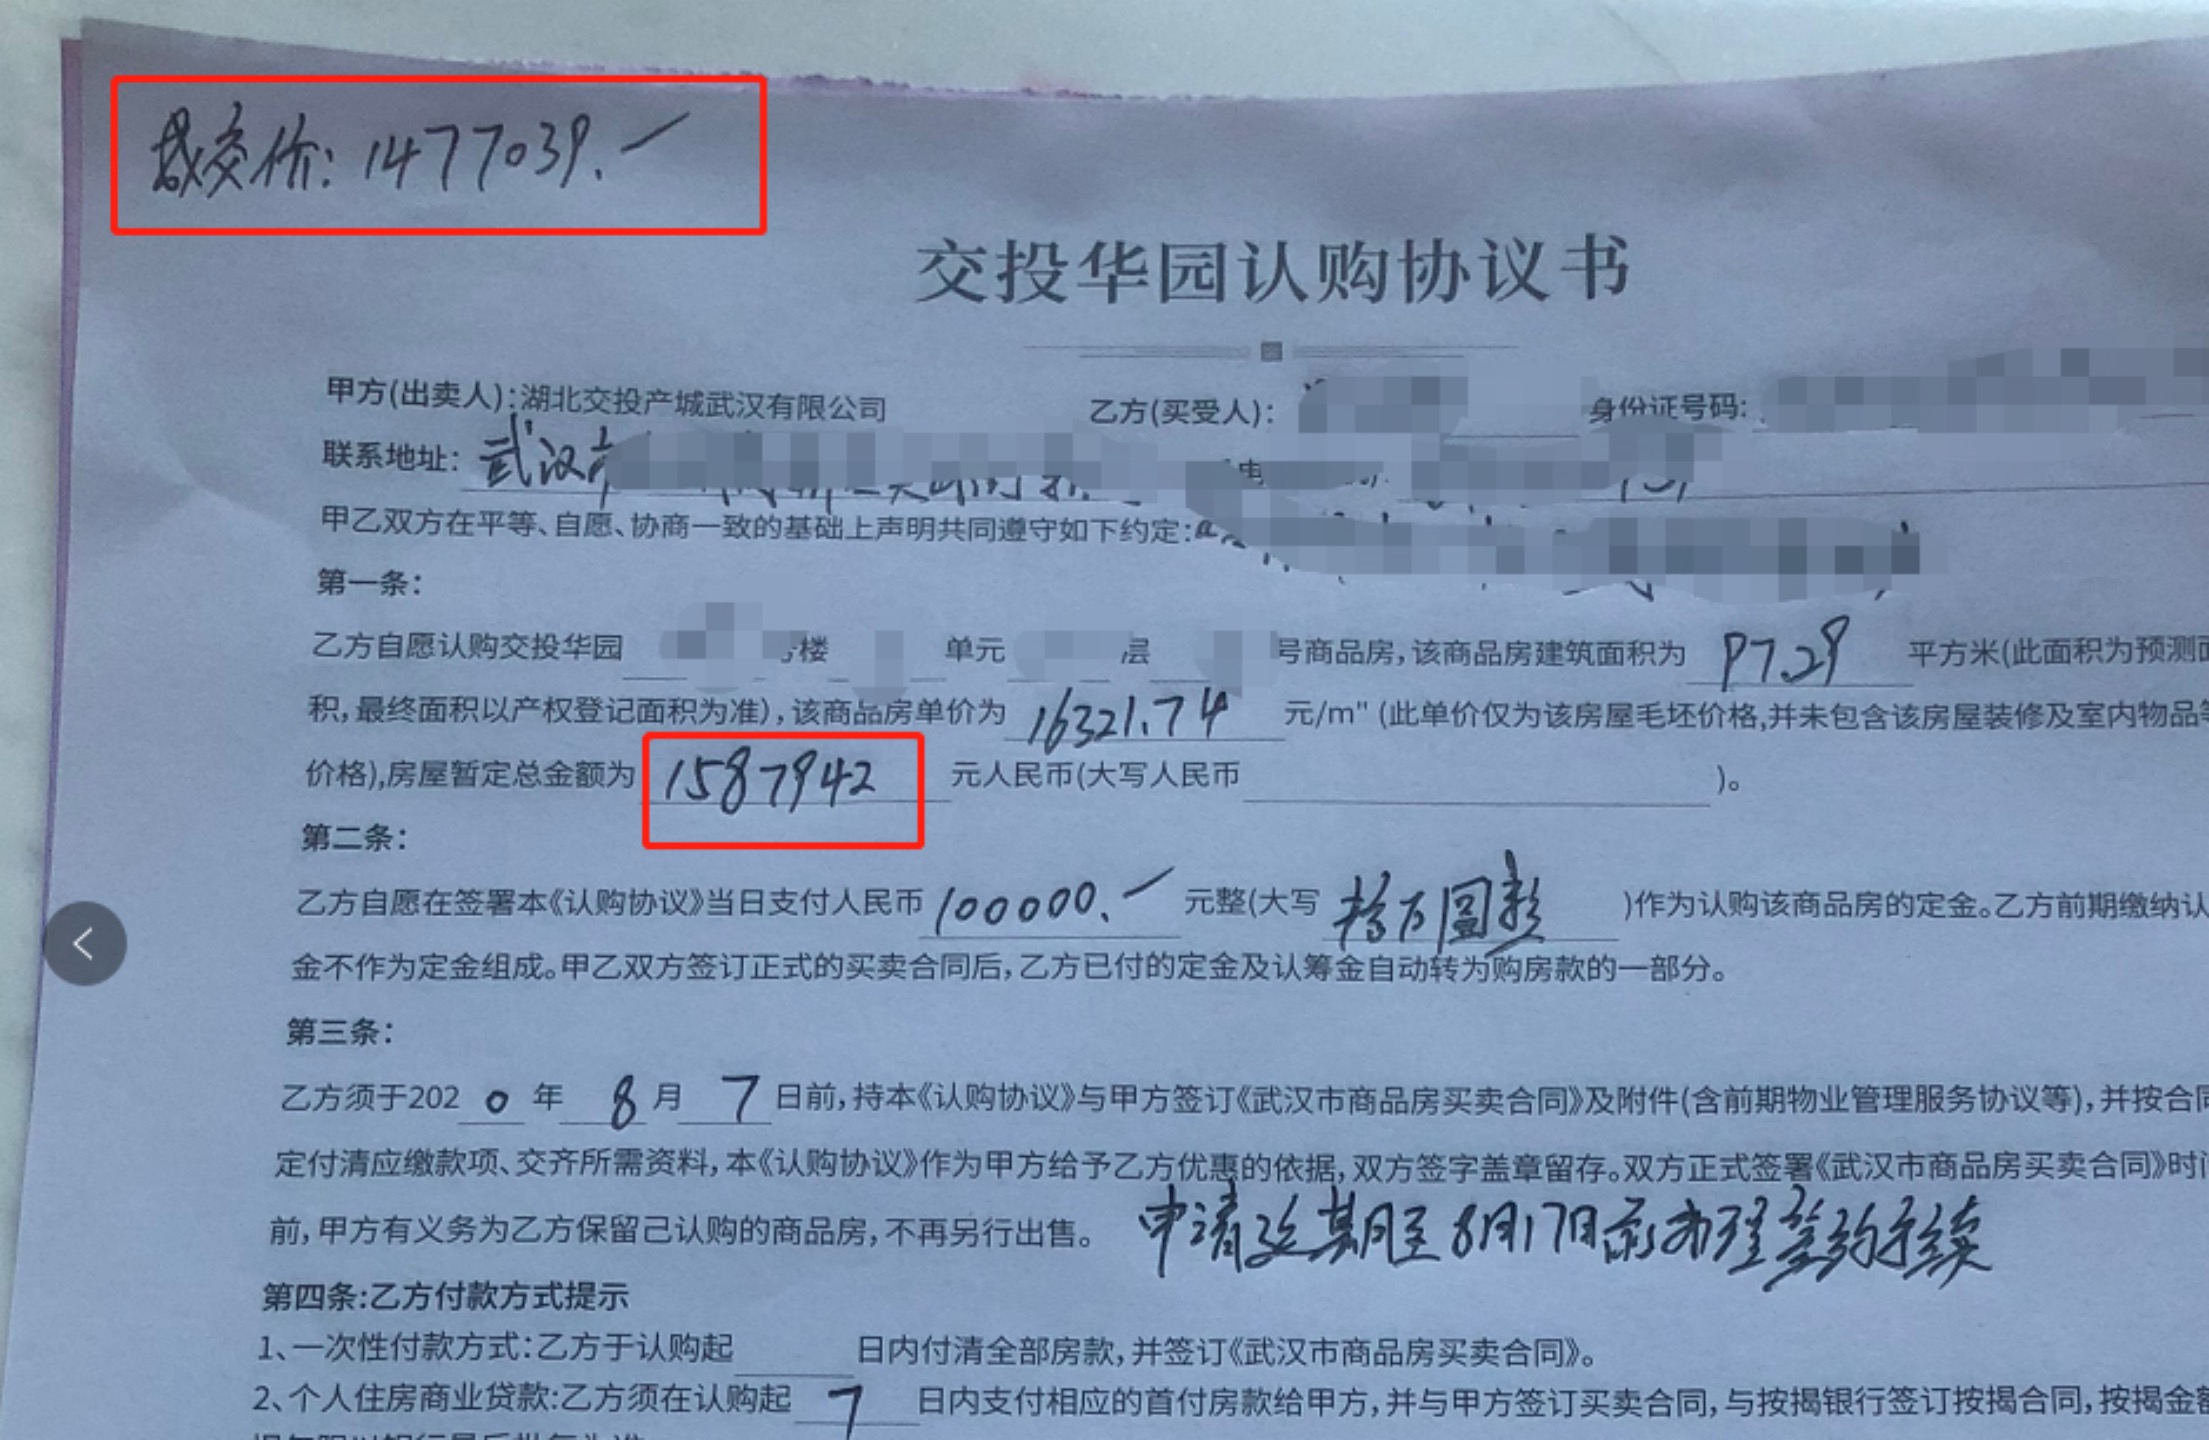 成交价：1477039.一
交投华园认购协议书
甲方(出卖人)：湖北交投产城武汉有限公司 乙方(买受人)： 身份证号码：
联系地址：武汉市
甲乙双方在平等、自愿、协商一致的基础上声明共同遵守如下约定：
第一条：
乙方自愿认购交投华园 楼 单元 层 号商品房，该商品房建筑面积为 97.29 平方米(此面积为预测面
积，最终面积以产权登记面积为准)，该商品房单价为 16321.74 元/m" (此单价仅为该房屋毛坯价格,并未包含该房屋装修及室内物品等
价格)，房屋暂定总金额为 1587942 元人民币(大写人民币 )。
第二条：
乙方自愿在签署本《认购协议》当日支付人民币 100000.一 元整(大写 拾万圆整 )作为认购该商品房的定金。乙方前期缴纳认
金不作为定金组成。甲乙双方签订正式的买卖合同后，乙方已付的定金及认筹金自动转为购房款的一部分。
第三条：
乙方须于2020年8月7日前，持本《认购协议》与甲方签订《武汉市商品房买卖合同》及附件(含前期物业管理服务协议等)，并按合同
定付清应缴款项、交齐所需资料，本《认购协议》作为甲方给予乙方优惠的依据，双方签字盖章留存。双方正式签署《武汉市商品房买卖合同》时间
前，甲方有义务为乙方保留己认购的商品房，不再另行出售。 申请延期至8月17日前办理签约手续
第四条:乙方付款方式提示
1、一次性付款方式：乙方于认购起 日内付清全部房款，并签订《武汉市商品房买卖合同》。
2、个人住房商业贷款:乙方须在认购起 7 日内支付相应的首付房款给甲方，并与甲方签订买卖合同，与按揭银行签订按揭合同，按揭金额